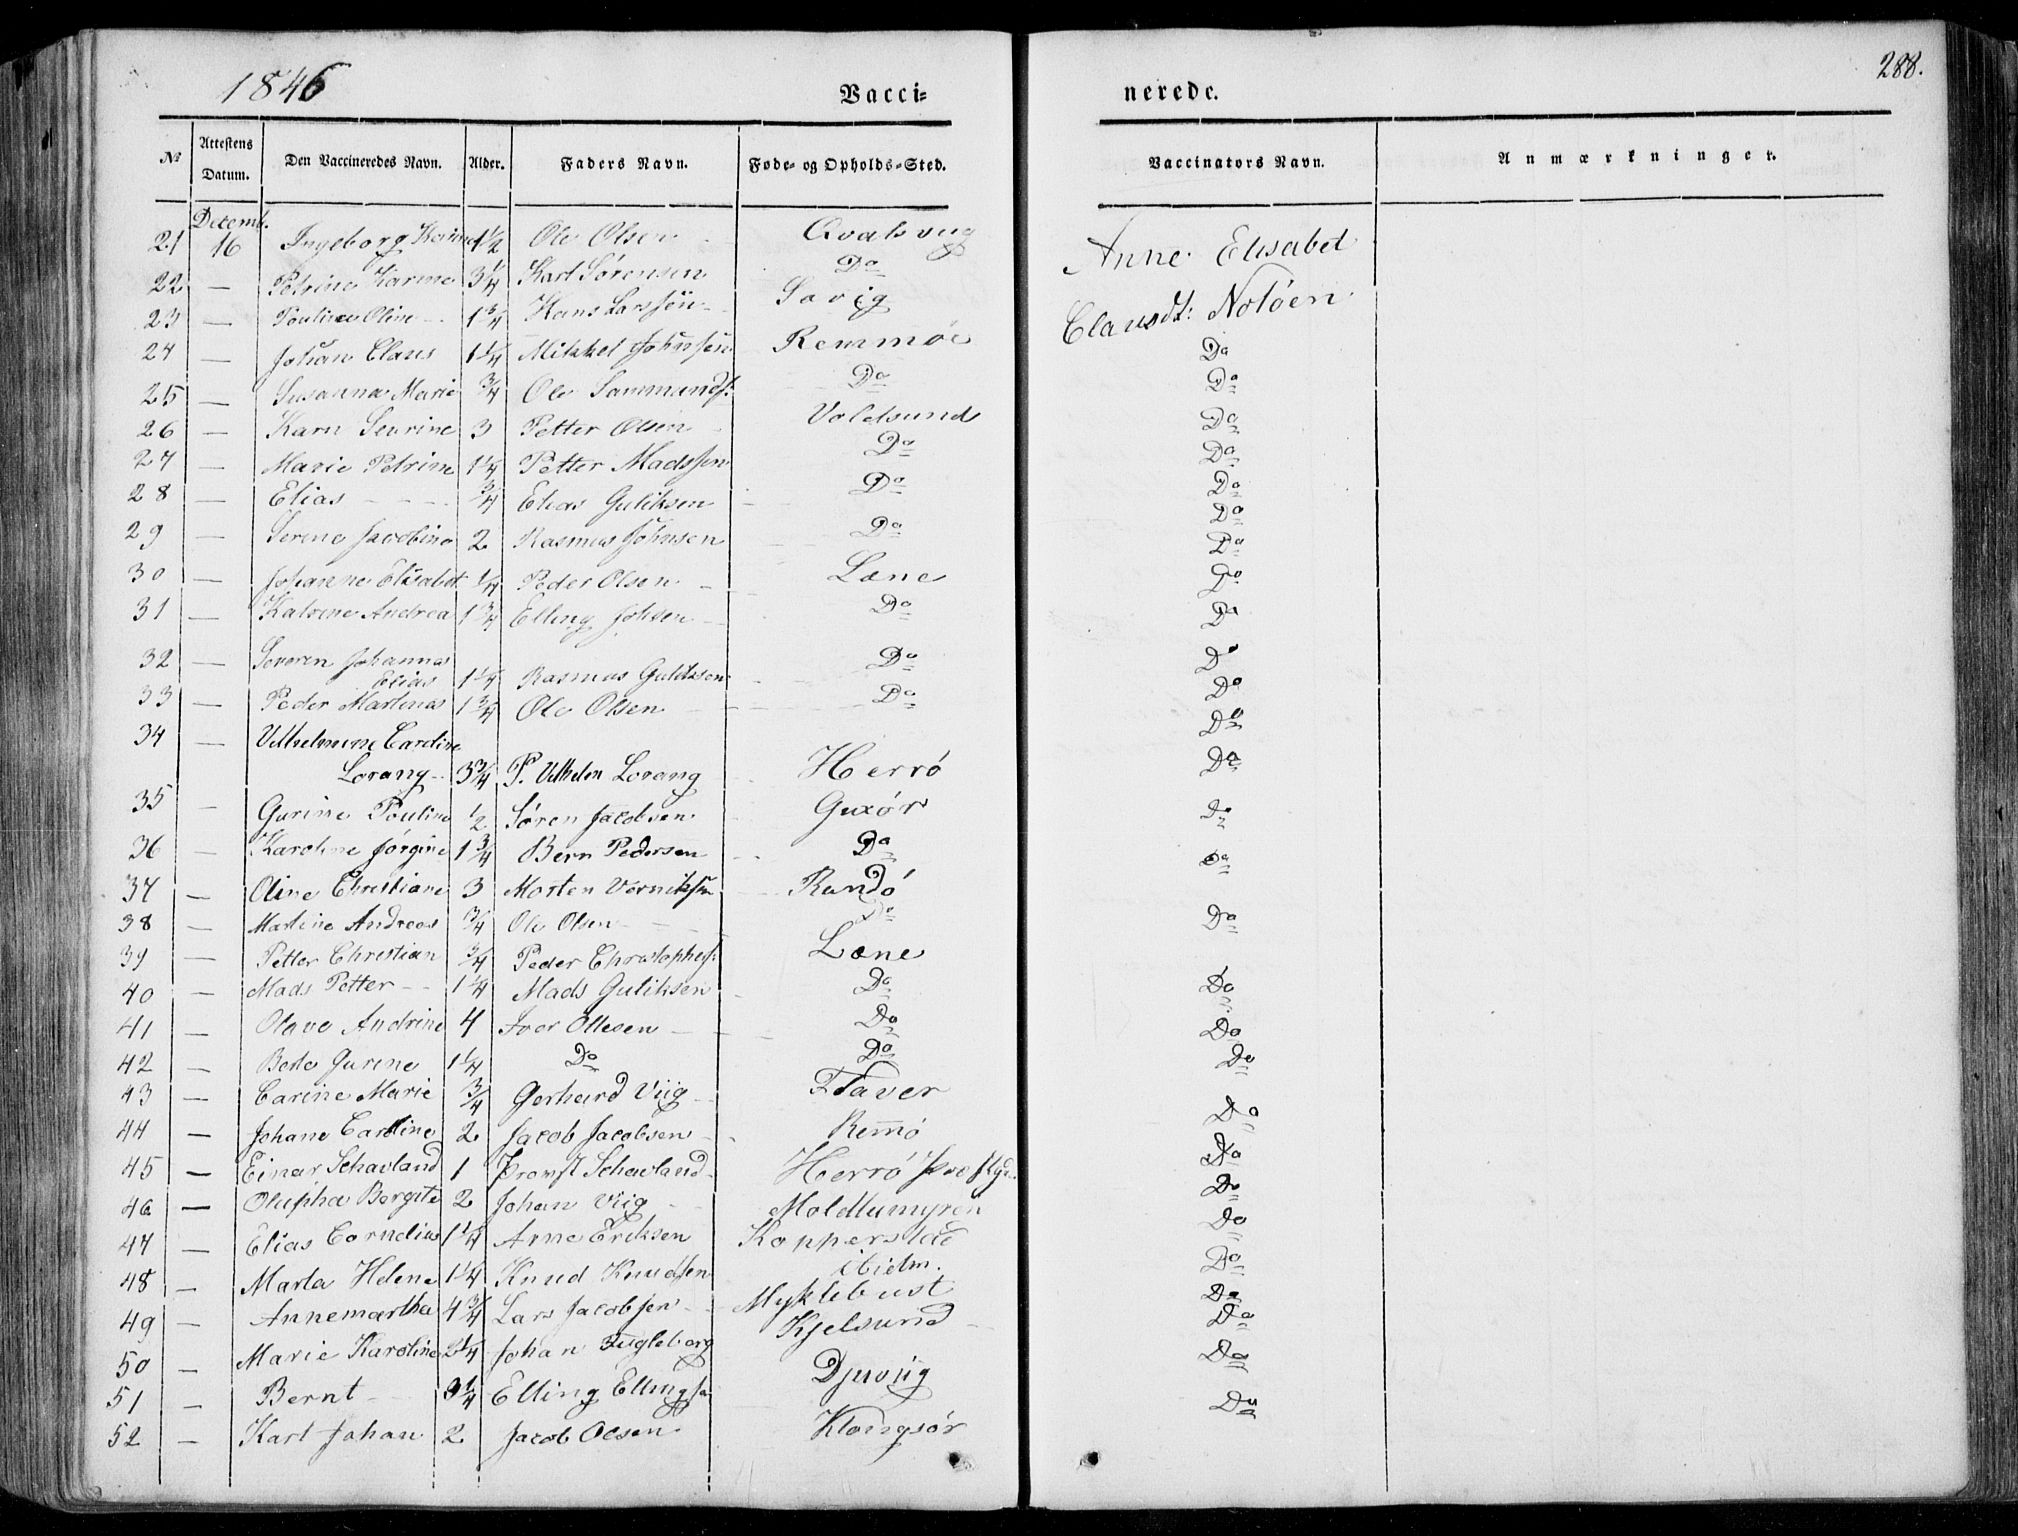 1846
Vacci=
nerede.
288.
No
Attestens Datum.
Den Vaccineredes Navn.
Alder.
Faders Navn.
Føde- og Opholds-Sted.
Vaccinators Navn.
Anmærkninger.
Decemb.
21 16 Ingeborg Karine 1½ Ole Olsen Qvalsvug Anne Elisabet
22 — Petrine Karine 3¼ Karl Sørensen Do
23 — Pouline Oline 1¾ Hans Larssen Savig Clausdt: Notøen
24 — Johan Claus 1¼ Mikkel Johnsen Remmøe Do
25 — Susanna Marie ¾ Ole Sammundss: Do Do
26 — Karn Severine 3 Petter Olsen Voldsund Do
27 — Marie Petrine 1¼ Petter Madssen Do Do
28 — Elias ¾ Elias Guliksen Do Do
29 — Serine Jacobine 2 Rasmus Johnsen Do Do
30 — Johanne Elisabet ¼ Peder Olsen Læne Do
31 — Katrine Andrea 1¾ Elling Johsen Do Do
32 — Severen Johannas
Elias 1¼ Rasmus Guliksen Do Do
33 — Peder Martinus 1¾ Ole Olsen Do Do
34 — Vilhelmine Caroline Do
Lorang 3¾ P. Vilhelm Lorang Herrø Do
35 — Gurine Pouline ½ Søren Jacobsen Guxør Do
36 — Karoline Jørgine 1¾ Bern Pedersen Do Do
37 — Oline Christiane 3 Morten Verniksen Rundø
38 — Martine Andreas ¾ Ole Olsen Do Do
39 — Petter Christian ¾ Peder Christophers: Læne
40 — Mads Petter 1¼ Mads Guliksen Do Do
41 — Olave Andrine 4 Iver Ollesen Do Do
42 — Bete Gurine 1¼ Do Do Do
43 — Carine Marie ¾ Gerhard Viig Flaver
44 — Johane Caroline 2 Jacob Jacobsen Remø Do
45 — Einar Schavland 1 Provst Schavland Herrø Do
46 — Olupha Bergite 2 Johan Viig Moldtumyren Do
47 — Elias Cornelius 1¼ Arne Eriksen Kopperstad Do
48 — Marta Helene 1¼ Knud Knudsen Do
49 — Annemartha 4¾ Lars Jacobsen Myklebust Do
50 — Marie Karoline 2¼ Johan Fugleberg Kjelsund Do
51 — Bernt 3¼ Elling Ellingsen Djuviig Do
52 — Karl Johan 2 Jacob Olsen Klongsør Do